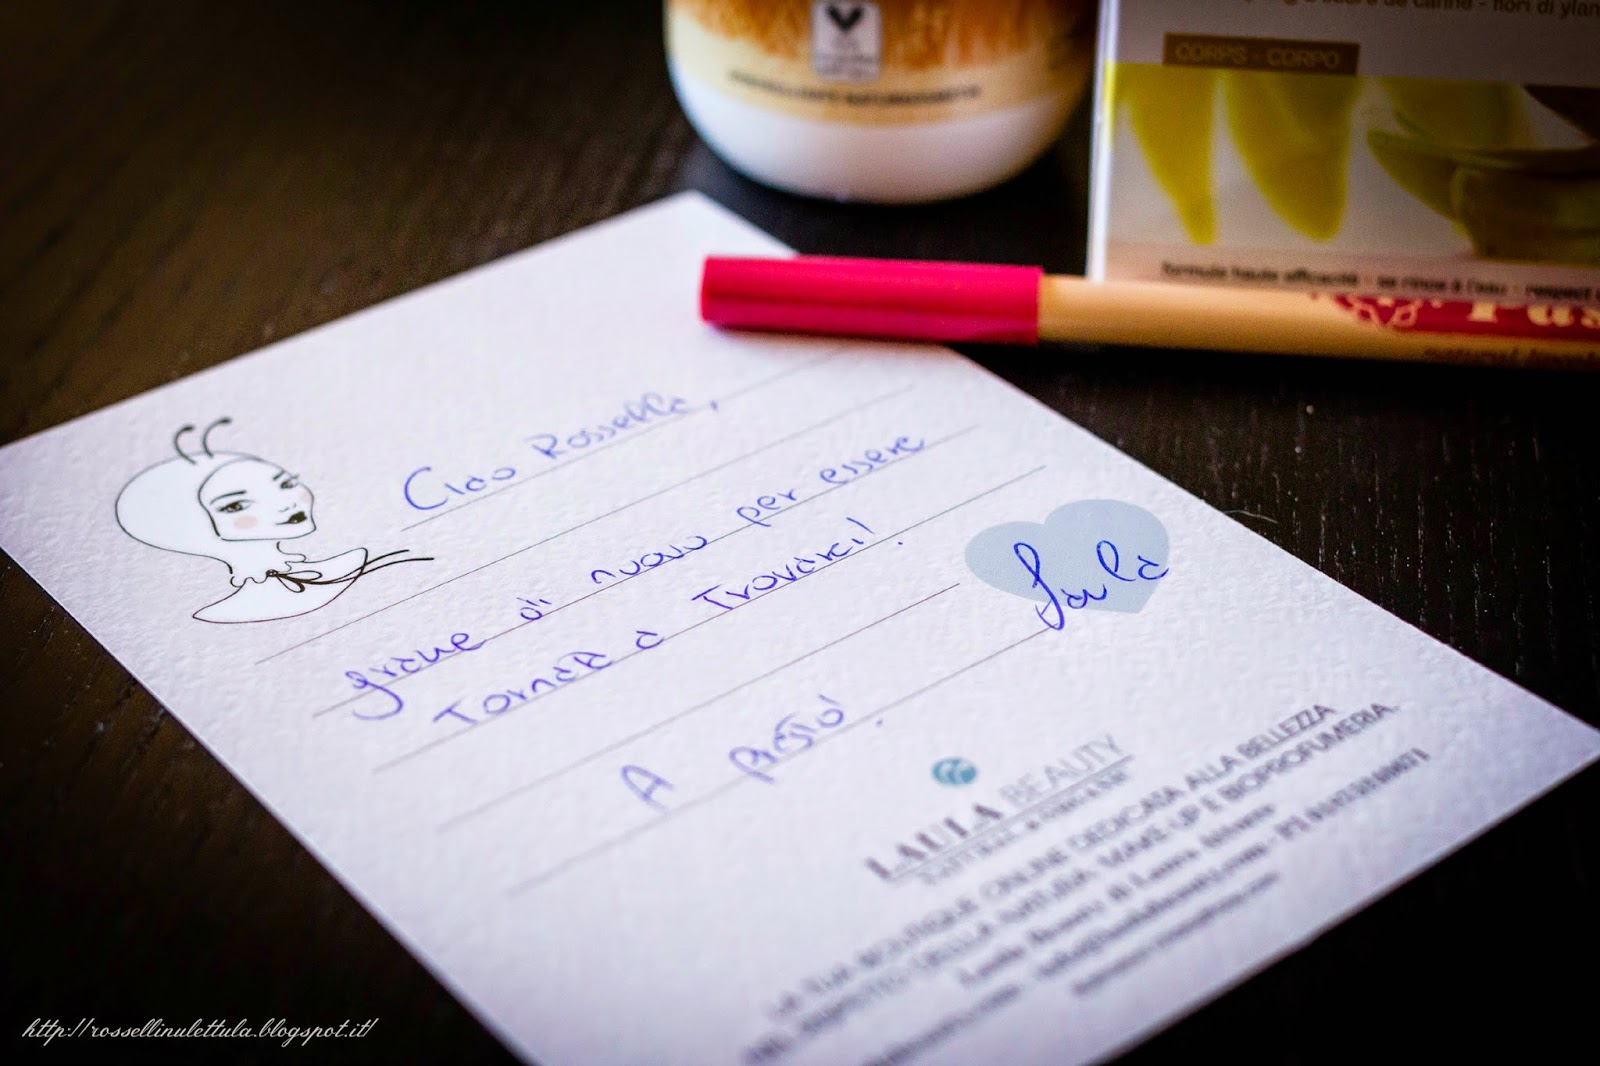 sucre de canne - fiori di ylan
CORPS - CORPO
formule haute efficacité - se rince à l'eau - respect
Ciao Rossella,
grazie di nuovo per essere
Tornata a Trovarci!
Laula
A presto!
LAULA BEAUTY
LA TUA BOUTIQUE ONLINE DEDICATA ALLA BELLEZZA
NEL RISPETTO DELLA NATURA. MAKE UP E BIOPROFUMERIA.
http://rossellinulettula.blogspot.it/